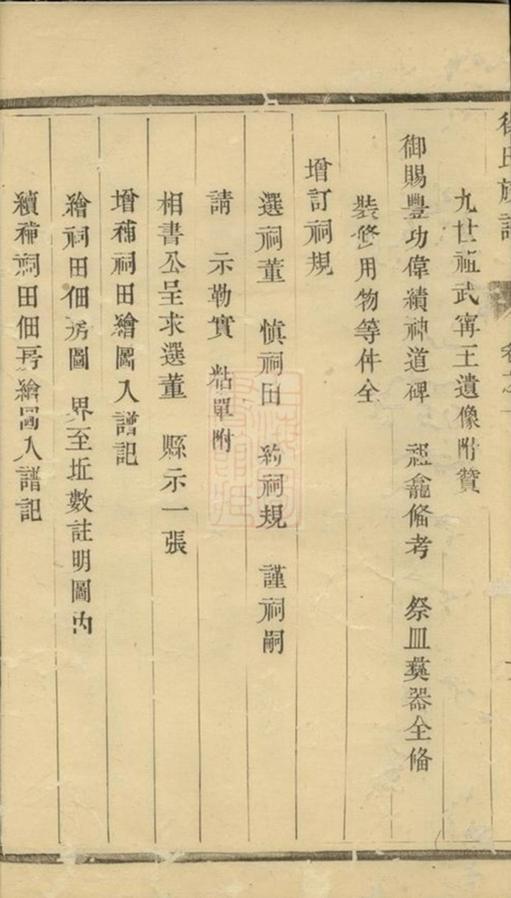 徐氏族譜
九世祖武甯王遺像附贊
御賜豐功偉績神道碑 祖龕俻考 祭皿彝器全俻
裝修用物等件全
增訂祠規
選祠董 慎祠田 約祠規 謹祠嗣
請 示勒實 粘單附
相書公呈求選董 縣示一張
增補祠田繪圖入譜記
繪祠田佃房圖 界至坵數註明圖內
續補祠田佃房繪圖入譜記